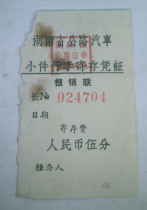 湖南省公路汽車
小件行李寄存凭証
报销联
长No 024704
日期
寄存费
人民币伍分
经办人